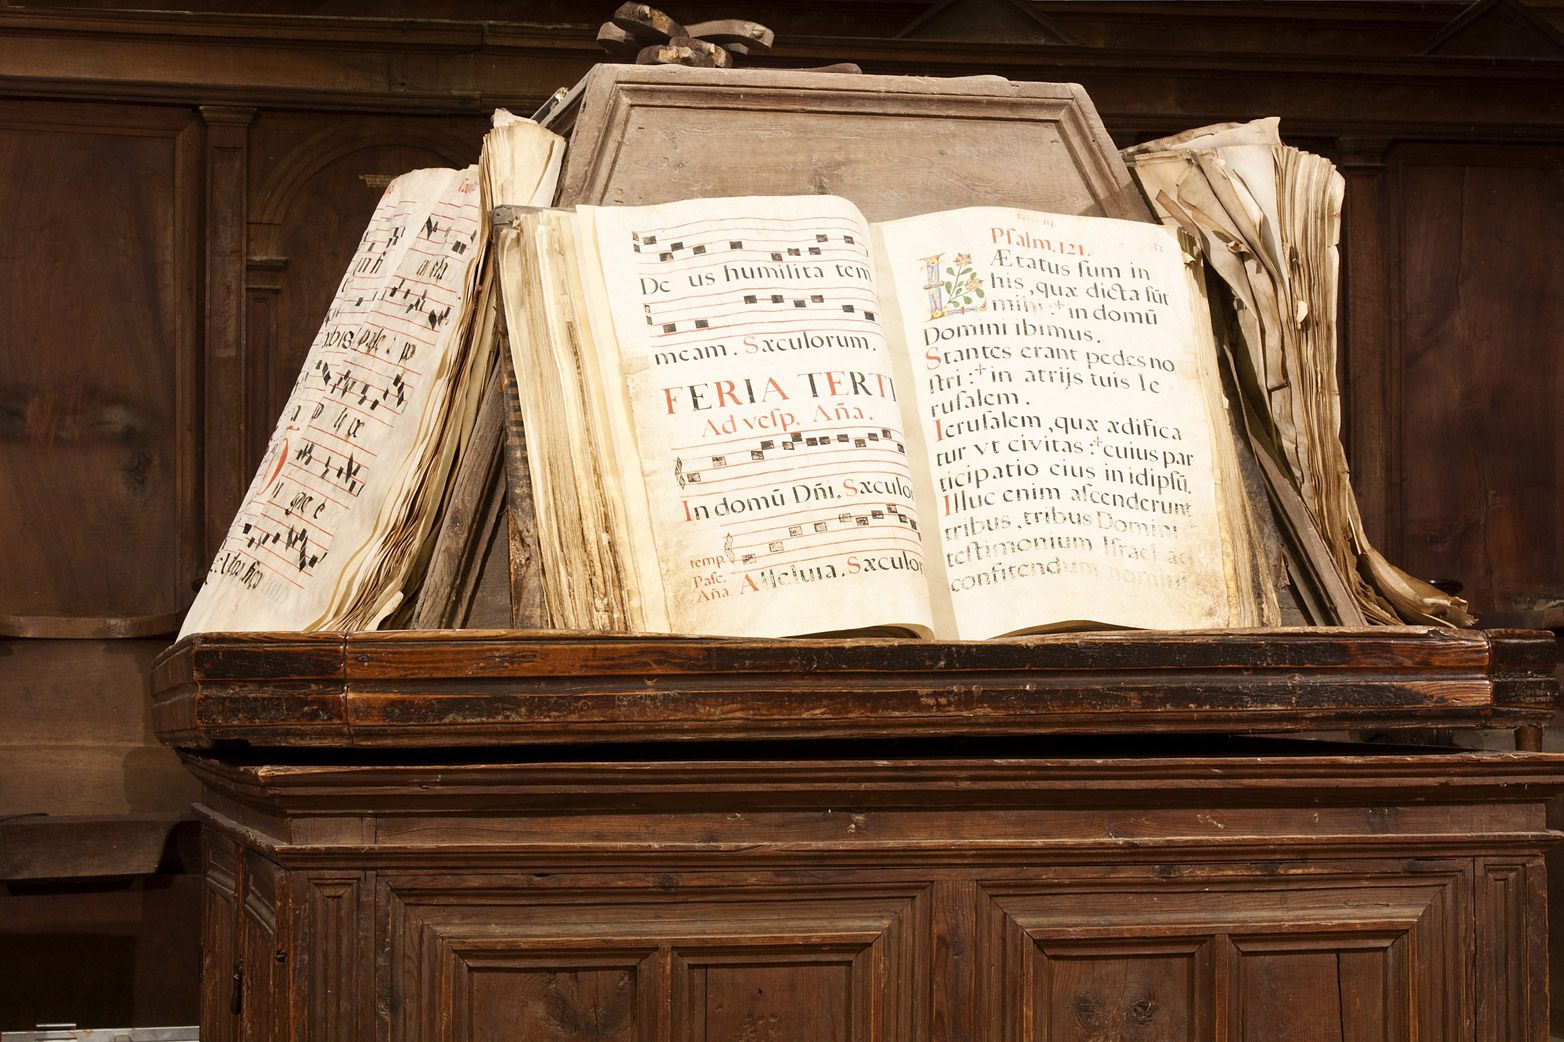 De us humilita tem
meam. Sæculorum.
FERIA TERTI
Ad veſp. Aña.
In domũ Dñi. Sæculo
temp.
Paſc.
Aña.
Alleluia. Sæculo
Pſalm. 121.
LÆtatus ſum in
his, quæ dicta ſũt
mihi : in domũ
Domini ibimus.
Stantes erant pedes no
ſtri : in atrijs tuis Ie
ruſalem.
Ieruſalem, quæ ædifica
tur vt civitas : cuius par
ticipatio eius in idipſũ.
Illuc enim aſcenderunt
tribus, tribus Domini
teſtimonium Iſrael ad
confitendum nomini